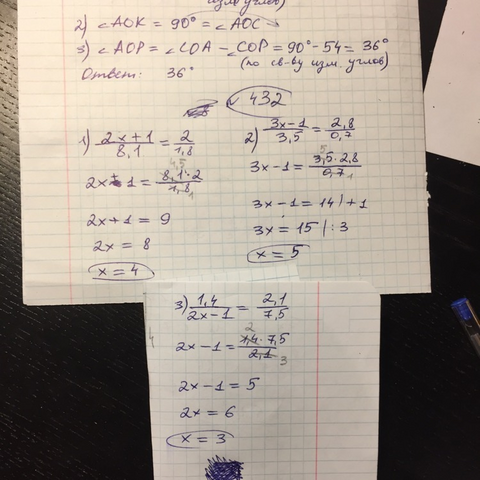 изм. углов)
2) ∠AOK = 90° = ∠AOC
3) ∠AOP = ∠COA − ∠COP = 90° − 54 = 36°
(по св-ву изм. углов)
Ответ: 36°
√ 432
1) (2x+1)/8,1 = 2/1,8
2x+1 = (8,1·2)/1,8
4,5
1
2x+1 = 9
2x = 8
x = 4
2) (3x−1)/3,5 = 2,8/0,7
3x−1 = (3,5·2,8)/0,7
5
1
3x−1 = 14 | +1
3x = 15 | :3
x = 5
3) 1,4/(2x−1) = 2,1/7,5
2x−1 = (1,4·7,5)/2,1
2
3
2x−1 = 5
2x = 6
x = 3